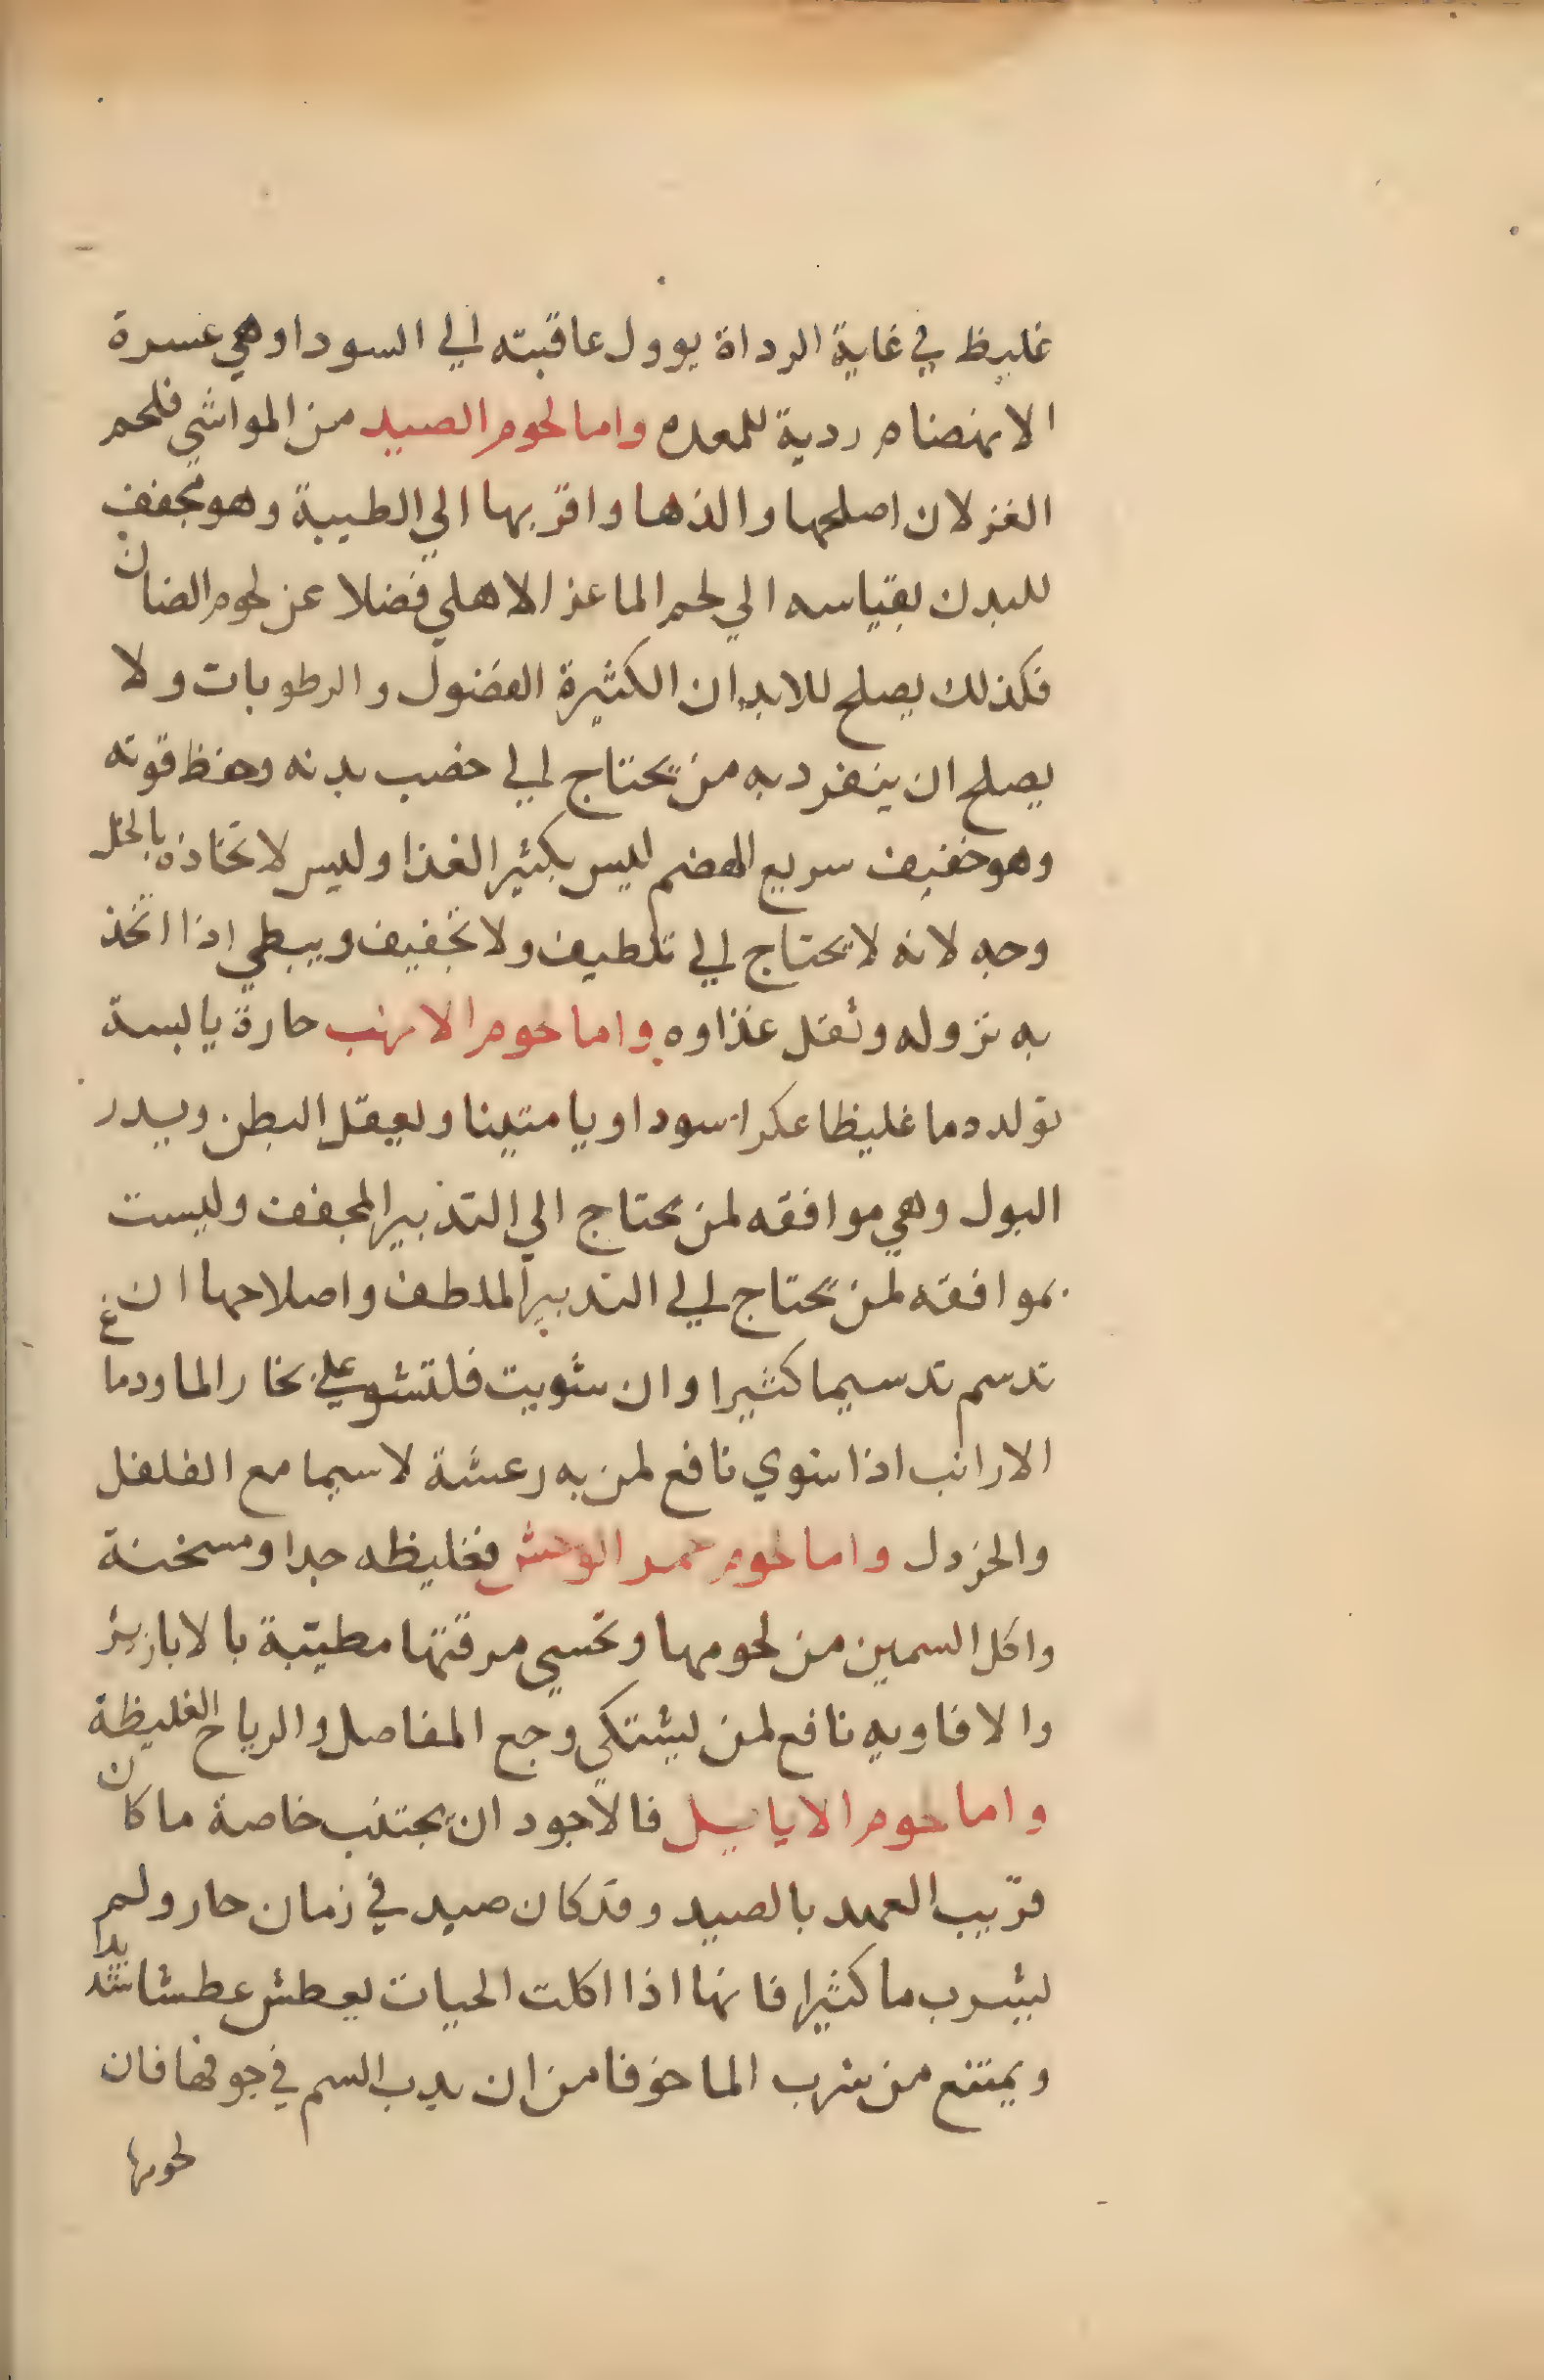 غليظ في غاية الرداة يوول عاقبته الي السودا وهي عسرة
الانهضام ردية للمعده واما لحوم الصيد من المواشي فلحم
الغزلان اصلحها والذها واقربها الي الطيبة وهو مجفف
للبدن بقياسه الي لحم الماعز الاهلي فضلا عن لحوم الضان
فكذلك يصلح للابدان الكثيرة الفضول والرطوبات ولا
يصلح ان ينفرد به من يحتاج الي خصب بدنه وحفظ قوته
وهو خفيف سريع الهضم ليس بكثير الغذا وليس لاتخاذه بالخل
وجه لانه لا يحتاج الي تلطيف ولا تجفيف ويبطي اذا اتخذ
به نزوله وثقل غذاوه واما لحوم الارنب حارة يابسة
تولد دما غليظا عكرا سوداويا متينا ويعقل البطن ويدر
البول وهي موافقه لمن يحتاج الي التدبير المجفف وليست
بموافقه لمن يحتاج الي التدبير الملطف واصلاحها ان
تدسم تدسيما كثيرا وان شويت فلتشوي علي بخار الما ودماغ
الارانب اذا شوي نافع لمن به رعشة لا سيما مع الفلفل
والخردل واما لحوم حمر الوحش فغليظه جدا ومسخنة
واكل السمين من لحومها وتحسي مرقتها مطيبة بالابازير
والافاويه نافع لمن يشتكي وجع المفاصل والرياح الغليظة
واما لحوم الاياييل فالاجود ان يجتنب خاصة ما كان
قريب العهد بالصيد وقد كان صيد في زمان حار ولم
يشرب ما كثيرا فانها اذا اكلت الحيات يعطش عطشا شديدا
ويمتنع من شرب الما خوفا من ان يدب السم في جوفها فان
لحومها